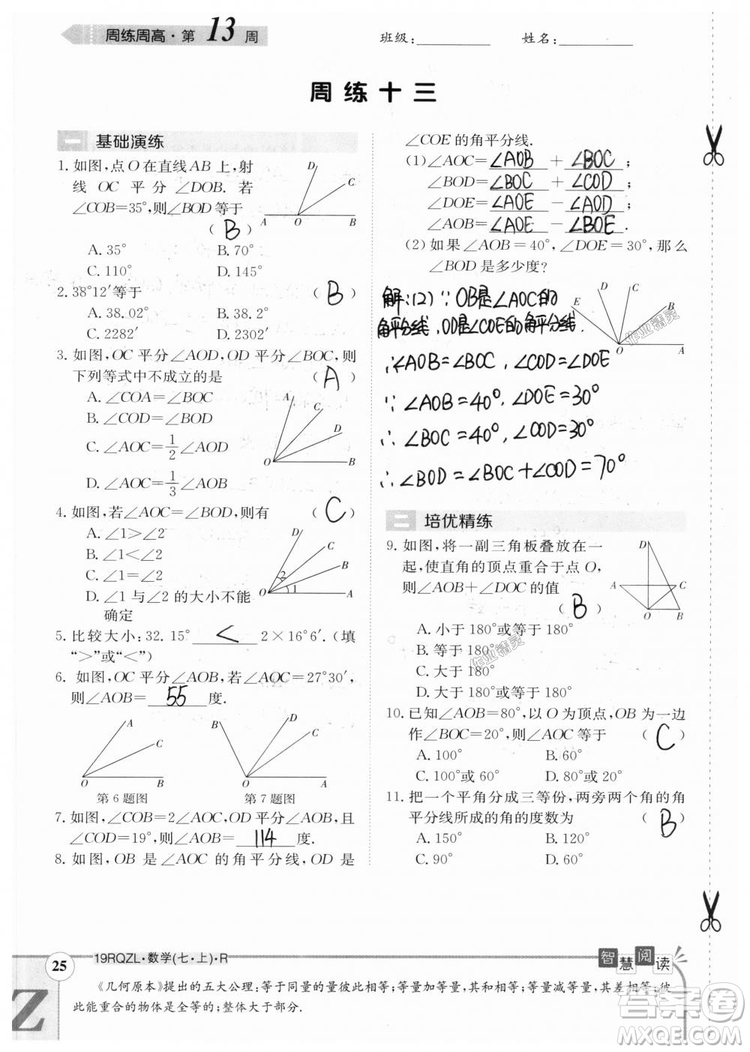 周练周高·第13周 班级: 姓名:
周练十三
一 基础演练
1. 如图,点O在直线AB上,射
线OC平分∠DOB. 若
∠COB=35°,则∠BOD等于
( B )
A. 35° B. 70°
C. 110° D. 145°
D
C
A O B
2. 38°12′等于 ( B )
A. 38.02° B. 38.2°
C. 2282′ D. 2302′
3. 如图,OC平分∠AOD,OD平分∠BOC,则
下列等式中不成立的是 ( A )
A. ∠COA=∠BOC
B. ∠COD=∠BOD
C. ∠AOC=1/2∠AOD
D. ∠AOC=1/3∠AOB
A
C
D
O B
4. 如图,若∠AOC=∠BOD,则有 ( C )
A. ∠1>∠2
B. ∠1<∠2
C. ∠1=∠2
D. ∠1与∠2的大小不能
确定
2
1
O A
5. 比较大小:32.15° < 2×16°6′. (填
“>”或“<”)
6. 如图,OC平分∠AOB. 若∠AOC=27°30′,
则∠AOB= 55 度.
A
C
O B
第6题图
D
B
C
O A
第7题图
7. 如图,∠COB=2∠AOC,OD平分∠AOB,且
∠COD=19°,则∠AOB= 114 度.
8. 如图,OB是∠AOC的角平分线,OD是
∠COE的角平分线.
(1) ∠AOC= ∠AOB + ∠BOC ;
∠BOD= ∠BOC + ∠COD ;
∠DOE= ∠AOE − ∠AOD ;
∠AOB= ∠AOE − ∠BOE .
(2) 如果∠AOB=40°,∠DOE=30°,那么
∠BOD是多少度?
解:(2)∵OB是∠AOC的
角平分线,OD是∠COE的角平分线
∴∠AOB=∠BOC,∠COD=∠DOE
∵∠AOB=40°,∠DOE=30°
∴∠BOC=40°,∠COD=30°
∴∠BOD=∠BOC+∠COD=70°
D
C
E
B
O A
作业精灵
二 培优精练
9. 如图,将一副三角板叠放在一
起,使直角的顶点重合于点O,
则∠AOB+∠DOC的值
( B )
A. 小于180°或等于180°
B. 等于180°
C. 大于180°
D. 大于180°或等于180°
D
A C
O B
作业精灵
10. 已知∠AOB=80°,以O为顶点,OB为一边
作∠BOC=20°,则∠AOC等于 ( C )
A. 100° B. 60°
C. 100°或60° D. 80°或20°
11. 把一个平角分成三等份,两旁两个角的角
平分线所成的角的度数为 ( B )
A. 150° B. 120°
C. 90° D. 60°
25 19RQZL·数学(七·上)·R 智慧阅读
《几何原本》提出的五大公理:等于同量的量彼此相等;等量加等量,其和相等;等量减等量,其差相等;彼
此能重合的物体是全等的;整体大于部分.
Z
答案圈
MXQE.COM